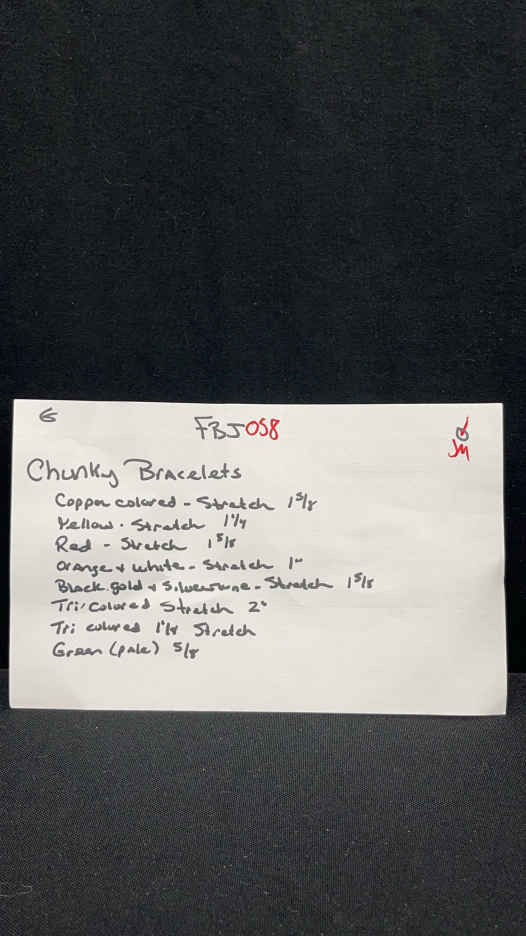 G
FBJ058
JM
Chunky Bracelets
Copper colored - Stretch 1 5/8
Yellow - Stretch 1 1/4
Red - Stretch 1 5/8
Orange + White - Stretch 1"
Black. gold + Silvertone - Stretch 1 5/8
Tri-colored Stretch 2"
Tri colored Stretch
Green (pale) 5/8